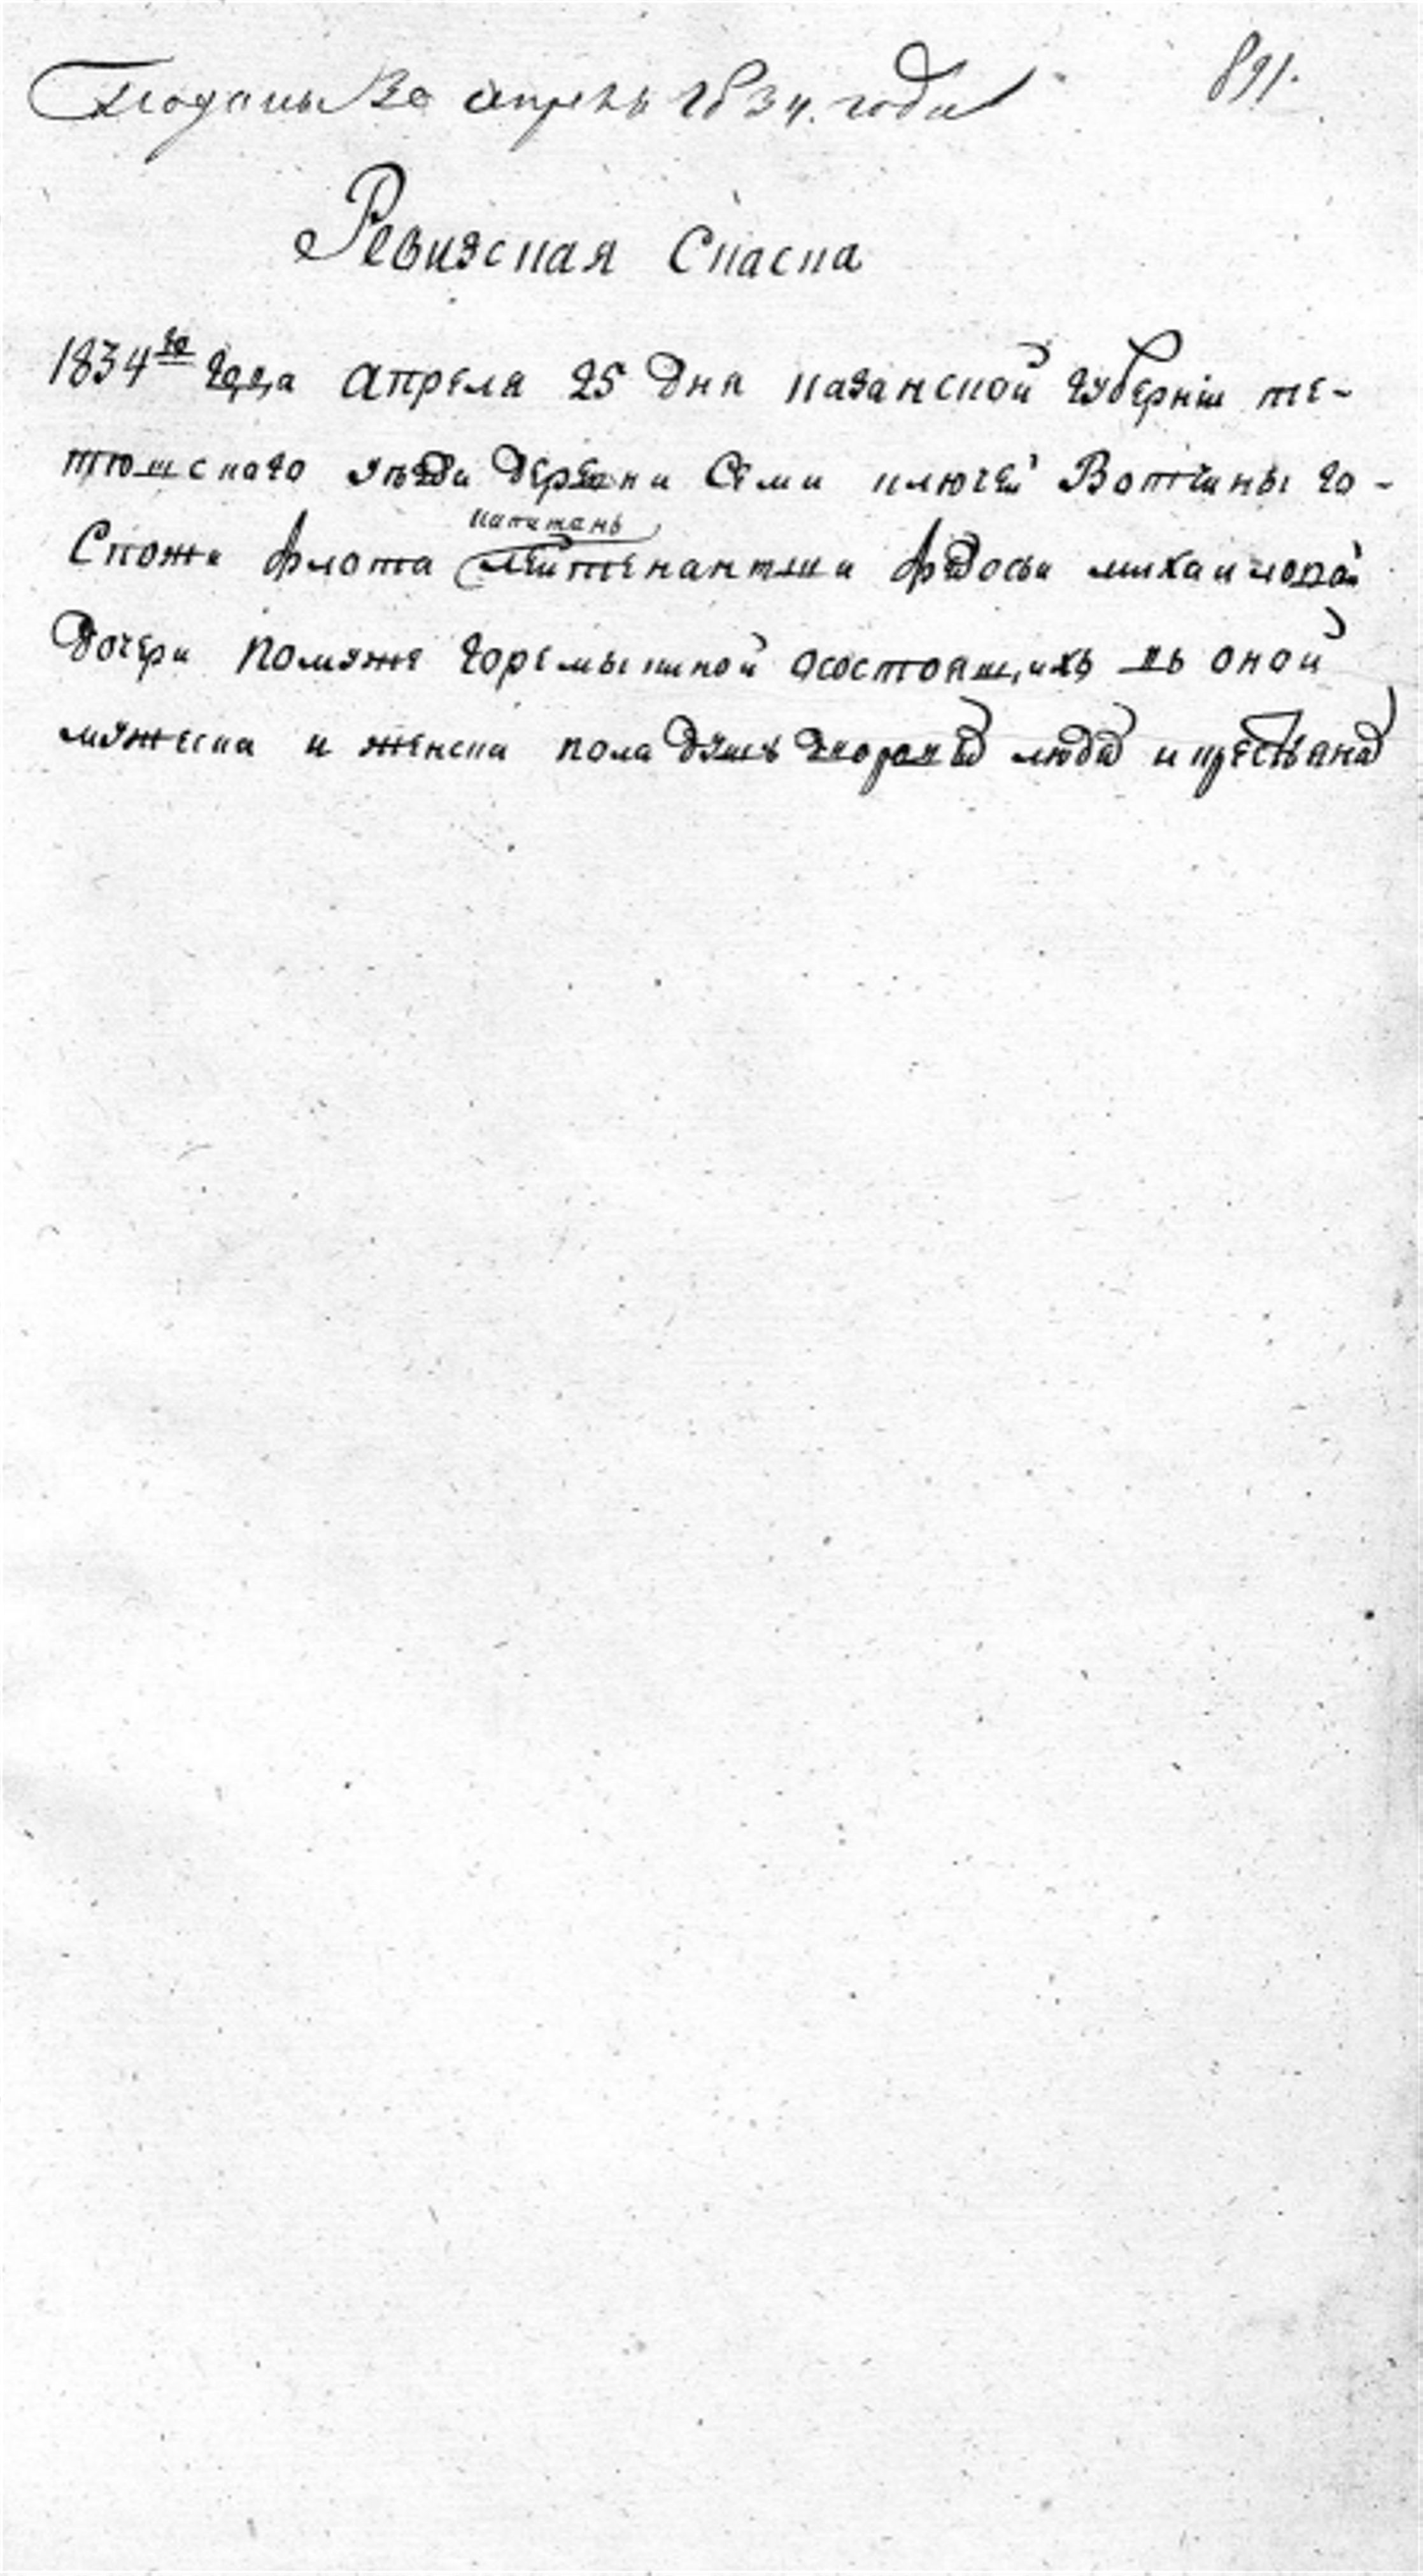 Подана 30 апреля 1834. года
891.
Ревизская Скаска
1834го года апреля 25 дня казанской губерніи те-
тюшскаго уѣзда деревни Семи ключей Вотчины го-
спожи флота капитань лейтенантши федосьи михаиловой
дочери помужѣ горемыкиной осостоящихъ въ оной
мужеска и женска пола душъ дворовых людей и крестьянах